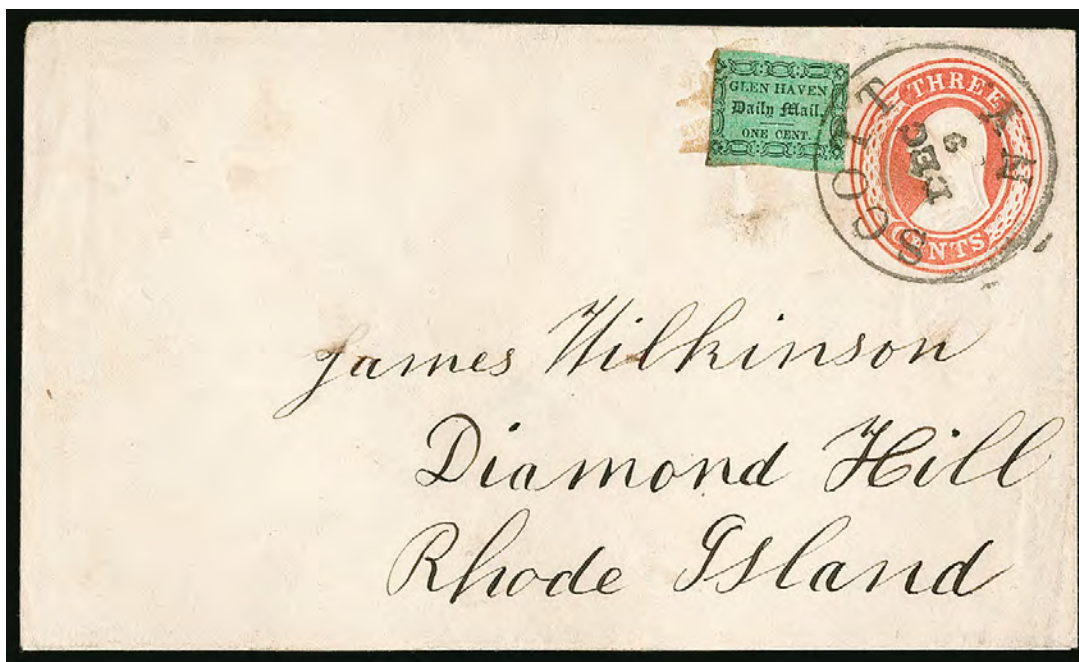 GLEN HAVEN
Daily Mail.
ONE CENT.
THREE
CENTS
SCOTT
N.Y.
DEC
6
James Wilkinson
Diamond Hill
Rhode Island